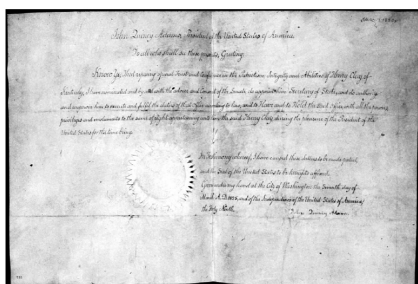 John Quincy Adams, President of the United States of America.
To all who shall see these presents, Greeting:
Know Ye, That reposing special Trust and Confidence in the Patriotism, Integrity and Abilities of Henry Clay of
Kentucky, I have nominated, and by and with the advice and consent of the Senate, do appoint him Secretary of State, and do authorize
and empower him to execute and fulfil the duties of that Office according to law, and to Have and to Hold the said Office with all the powers,
privileges and emoluments to the same of right appertaining unto him the said Henry Clay during the pleasure of the President of the
United States for the time being.
In Testimony whereof, I have caused these Letters to be made patent
and the Seal of the United States to be hereunto affixed.
Given under my hand at the City of Washington the Seventh day of
March A.D. 1825, and of the Independence of the United States of America,
the Forty Ninth.
John Quincy Adams